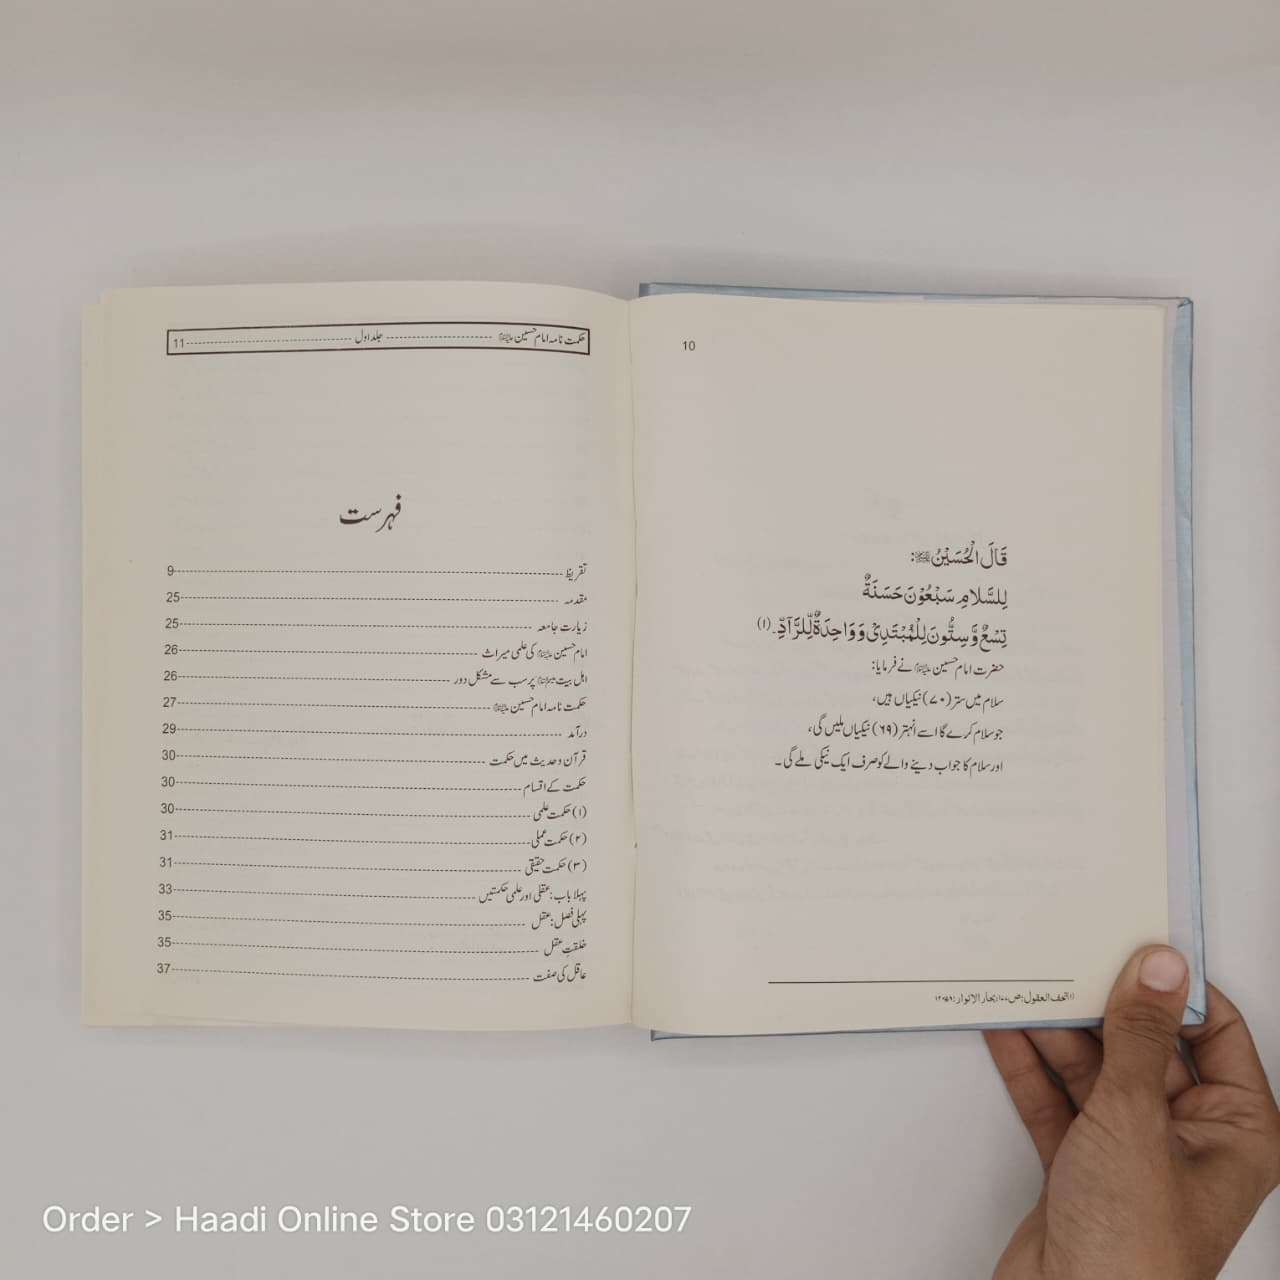 10
قَالَ الْحُسَيْنُ ؑ:
لِلسَّلَامِ سَبْعُوْنَ حَسَنَةٌ
تِسْعٌ وَّسِتُّونَ لِلْمُبْتَدِیْ وَوَاحِدَةٌ لِّلرَّآدِّ۔(۱)
حضرت امام حسین ؑ نے فرمایا:
سلام میں ستر (۷۰) نیکیاں ہیں،
جو سلام کرے گا اسے اُنہتر (۶۹) نیکیاں ملیں گی،
اور سلام کا جواب دینے والے کو صرف ایک نیکی ملے گی۔
تحف العقول: ص بحار الانوار:
حکمت نامہ امام حسین ؑ ---------- جلد اول ---------- 11
فہرست
تقریظ ---------- 9
مقدمہ ---------- 25
زیارت جامعہ ---------- 25
امام حسین ؑ کی علمی میراث ---------- 26
اہل بیت ؑ پر سب سے مشکل دور ---------- 26
حکمت نامہ امام حسین ؑ ---------- 27
درآمد ---------- 29
قرآن و حدیث میں حکمت ---------- 30
حکمت کے اقسام ---------- 30
(۱) حکمت علمی ---------- 30
(۲) حکمت عملی ---------- 31
(۳) حکمت حقیقی ---------- 31
پہلا باب: عقلی اور علمی حکمتیں ---------- 33
پہلی فصل: عقل ---------- 35
خلقتِ عقل ---------- 35
عاقل کی صفت ---------- 37
Order > Haadi Online Store 03121460207